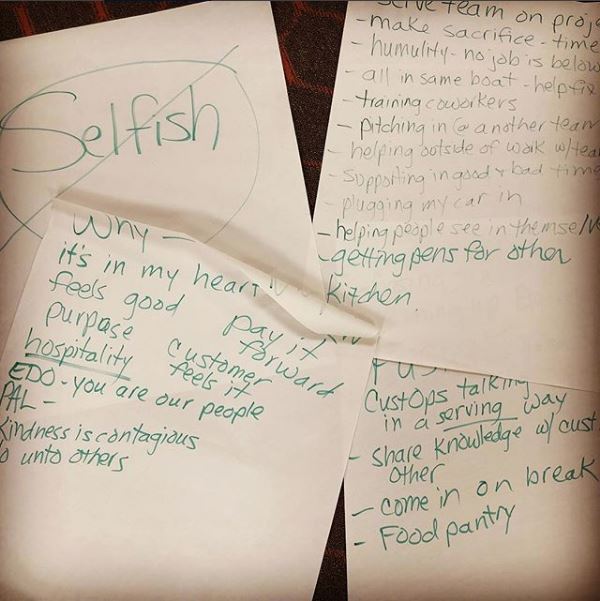 Selfish
Serve team on proj
- make sacrifice - time
- humulity - no job is below
- all in same boat - help fix
- training coworkers
- pitching in @ another team
- helping outside of work w/tea
- supporting in good & bad time
- plugging my car in
- helping people see in themselv
- getting pens for other
kitchen
Why -
it's in my heart
feels good
purpose
pay it
forward
hospitality
customer
feels it
EDO - you are our people
PAL -
Kindness is contagious
o unto others
CustOps talking
in a serving way
- share knowledge w/ cust.
other
- come in on break
- Food pantry